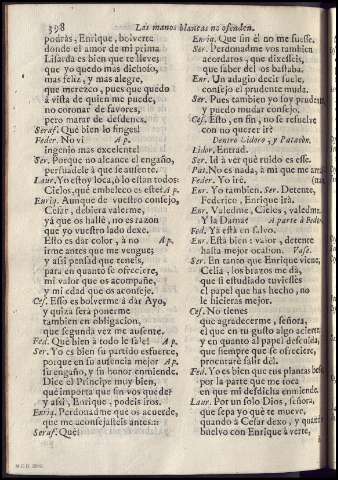 398
Las manos blancas no ofenden.
podràs, Enrique, bolverte
donde el amor de mi prima
Lisarda es bien que te lleve;
que yo quedo mas dichoso,
mas feliz, y mas alegre,
que merezco, pues que quedo
à vista de quien me puede,
no coronar de favores,
pero matar de desdenes.
Seraf. Què bien lo finges!
Feder. No vì A p.
ingenio mas excelente!
Ser. Porque no alcance el engaño,
persuadele à que se ausente.
Laur. Yo estoy loca, ò lo estàn todos:
Cielos, què embeleco es este! A p.
Enriq. Aunque de vuestro consejo,
Cesar, debiera valerme,
yà que os hallè, no es razon
que yo vuestro lado dexe.
Esto es dàr color, à no A p.
irme antes que me vengue;
y assi pensad que teneis,
para en quanto se ofreciere,
mi valor que os acompañe,
y mi edad que os aconseje.
Ces. Esso es bolverme à dàr Ayo,
y quizà serà ponerme
tambien en obligacion,
que segunda vez me ausente.
Fed. Què bien à todo le sale! A p.
Ser. Yo es bien su partido esfuerce,
porque en su ausencia mejor A p.
su engaño, y su honor enmiende.
Dice el Principe muy bien,
què importa que sin vos quede?
y assi, Enrique, podeis iros.
Enriq. Perdonadme que os acuerde,
que me aconsejasteis antes::
Seraf. Què?
Enriq. Que sin èl no me fuesse.
Ser. Perdonadme vos tambien
acordaros, que dixesteis,
que saber del os bastaba.
Enr. Un adagio decir suele,
consejo el prudente muda.
Ser. Pues tambien yo soy prudente,
y puedo mudar consejo.
Ces. Esto, en fin, no se resuelve
con no querer irè
Dentro Lidoro, y Patacòn.
Lidor. Entrad.
Ser. Id à vèr què ruido es esse.
Pat. No es nada, à mi que me
Feder. Yo irè.
Enr. Yo tambien. Ser. Detente,
Federico, Enrique irà.
Enr. Valedme, Cielos,
Y la Dama? A parte à
Fed. Yà està en salvo.
Enr. Està bien; valor, detente
hasta mejor ocasion. Vase.
Ser. En tanto que Enrique viene,
Celia, los brazos me dà,
que si estudiado tuviesses
el papel que has hecho, no
le hicieras mejor.
Ces. No tienes
que agradecerme, señora,
el que en tu gusto algo acierte,
y en quanto al papel descuida,
que siempre que se ofreciere,
procurarè salir del.
Fed. Yo es bien que tus plantas
por la parte que me toca
en que mi desdicha enmiende.
Laur. Por un solo Dios, señora,
que sepa yo què te mueve,
quando à Cesar dexo, y quando
buelvo con Enrique à verte,